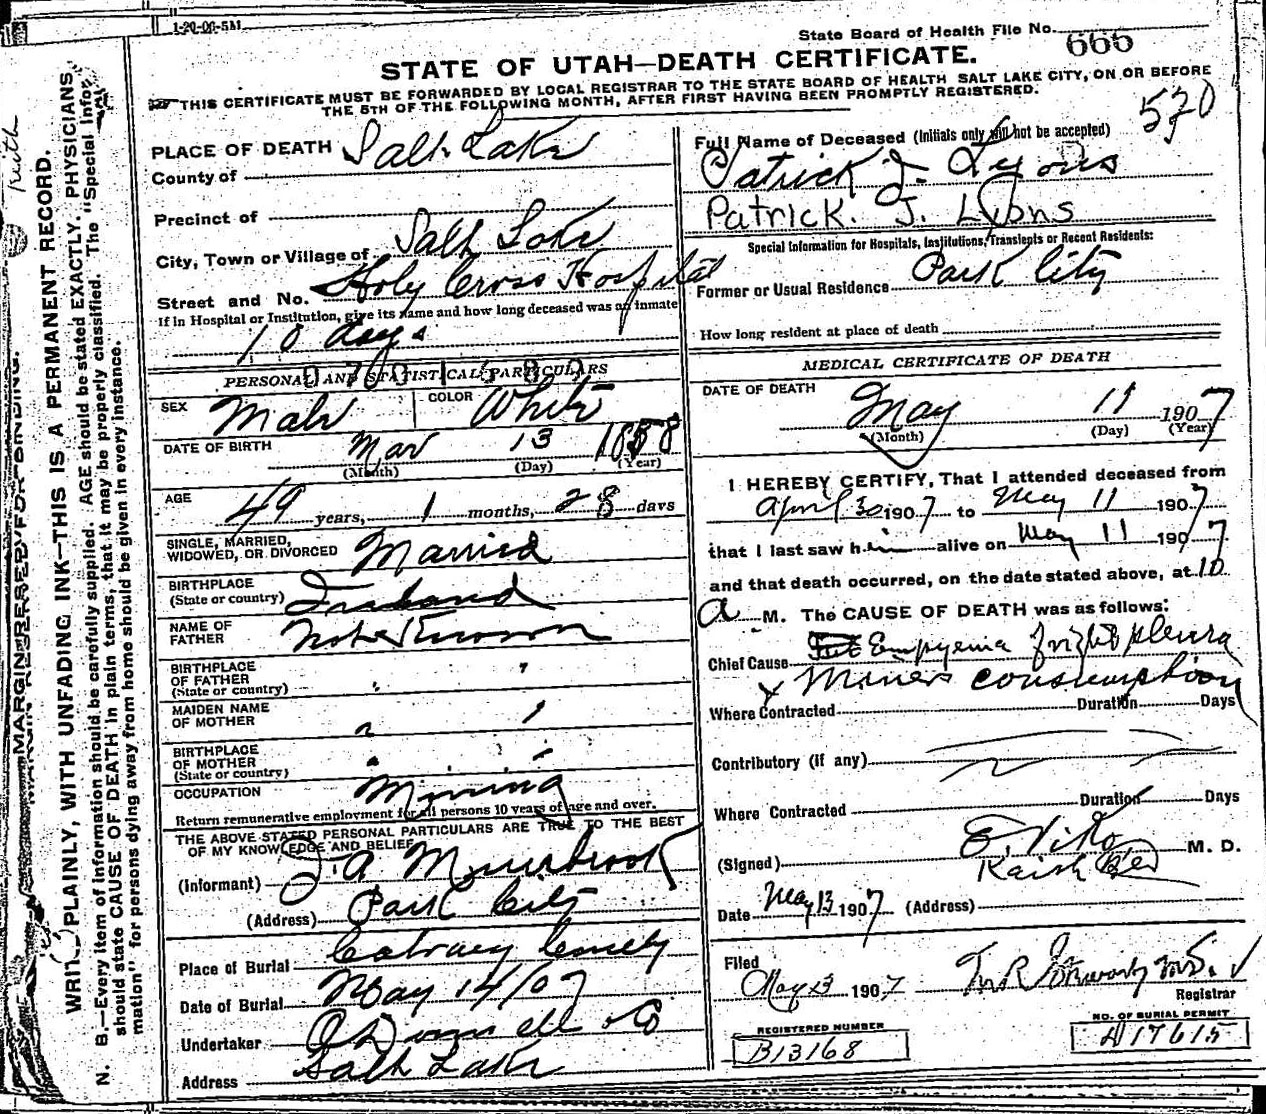 1-20-06-5M
State Board of Health File No. 666
STATE OF UTAH—DEATH CERTIFICATE.
THIS CERTIFICATE MUST BE FORWARDED BY LOCAL REGISTRAR TO THE STATE BOARD OF HEALTH SALT LAKE CITY, ON OR BEFORE
THE 5TH OF THE FOLLOWING MONTH, AFTER FIRST HAVING BEEN PROMPTLY REGISTERED.
570
WRITE PLAINLY, WITH UNFADING INK—THIS IS A PERMANENT RECORD.
N. B.—Every item of information should be carefully supplied. AGE should be stated EXACTLY. PHYSICIANS
should state CAUSE OF DEATH in plain terms, that it may be properly classified. The "Special Infor-
mation" for persons dying away from home should be given in every instance.
MARGIN RESERVED FOR BINDING.
PLACE OF DEATH Salt Lake
County of
Precinct of
City, Town or Village of Salt Lake
Street and No. Holy Cross Hospital
If in Hospital or Institution, give its name and how long deceased was an inmate
10 days
PERSONAL AND STATISTICAL PARTICULARS
SEX Male COLOR White
DATE OF BIRTH Mar 13 1858
(Month) (Day) (Year)
AGE 49 years, 1 months, 28 days
SINGLE, MARRIED,
WIDOWED, OR DIVORCED Married
BIRTHPLACE
(State or country) Ireland
NAME OF
FATHER Not Known
BIRTHPLACE
OF FATHER
(State or country) " "
MAIDEN NAME
OF MOTHER " "
BIRTHPLACE
OF MOTHER
(State or country) " "
OCCUPATION Mining
Return remunerative employment for all persons 10 years of age and over.
THE ABOVE STATED PERSONAL PARTICULARS ARE TRUE TO THE BEST
OF MY KNOWLEDGE AND BELIEF
(Informant) J. A.
(Address) Park City
Place of Burial
Date of Burial May 14/07
Undertaker O'Donnell & Co
Address Salt Lake
Full Name of Deceased (Initials only will not be accepted)
Patrick J. Lyons
Patrick. J. Lyons
Special Information for Hospitals, Institutions, Transients or Recent Residents:
Former or Usual Residence Park City
How long resident at place of death
MEDICAL CERTIFICATE OF DEATH
DATE OF DEATH May 11 1907
(Month) (Day) (Year)
I HEREBY CERTIFY, That I attended deceased from
April 30 1907 to May 11 1907
that I last saw him alive on May 11 1907
and that death occurred, on the date stated above, at 10
a M. The CAUSE OF DEATH was as follows:
Chief Cause Empyema right pleura
Miners consumption
Where Contracted Duration Days
Contributory (if any)
Where Contracted Duration Days
(Signed) M. D.
Date May 13 1907 (Address)
Filed
May 13 1907
Registrar
REGISTERED NUMBER
B13168
NO. OF BURIAL PERMIT
A17615